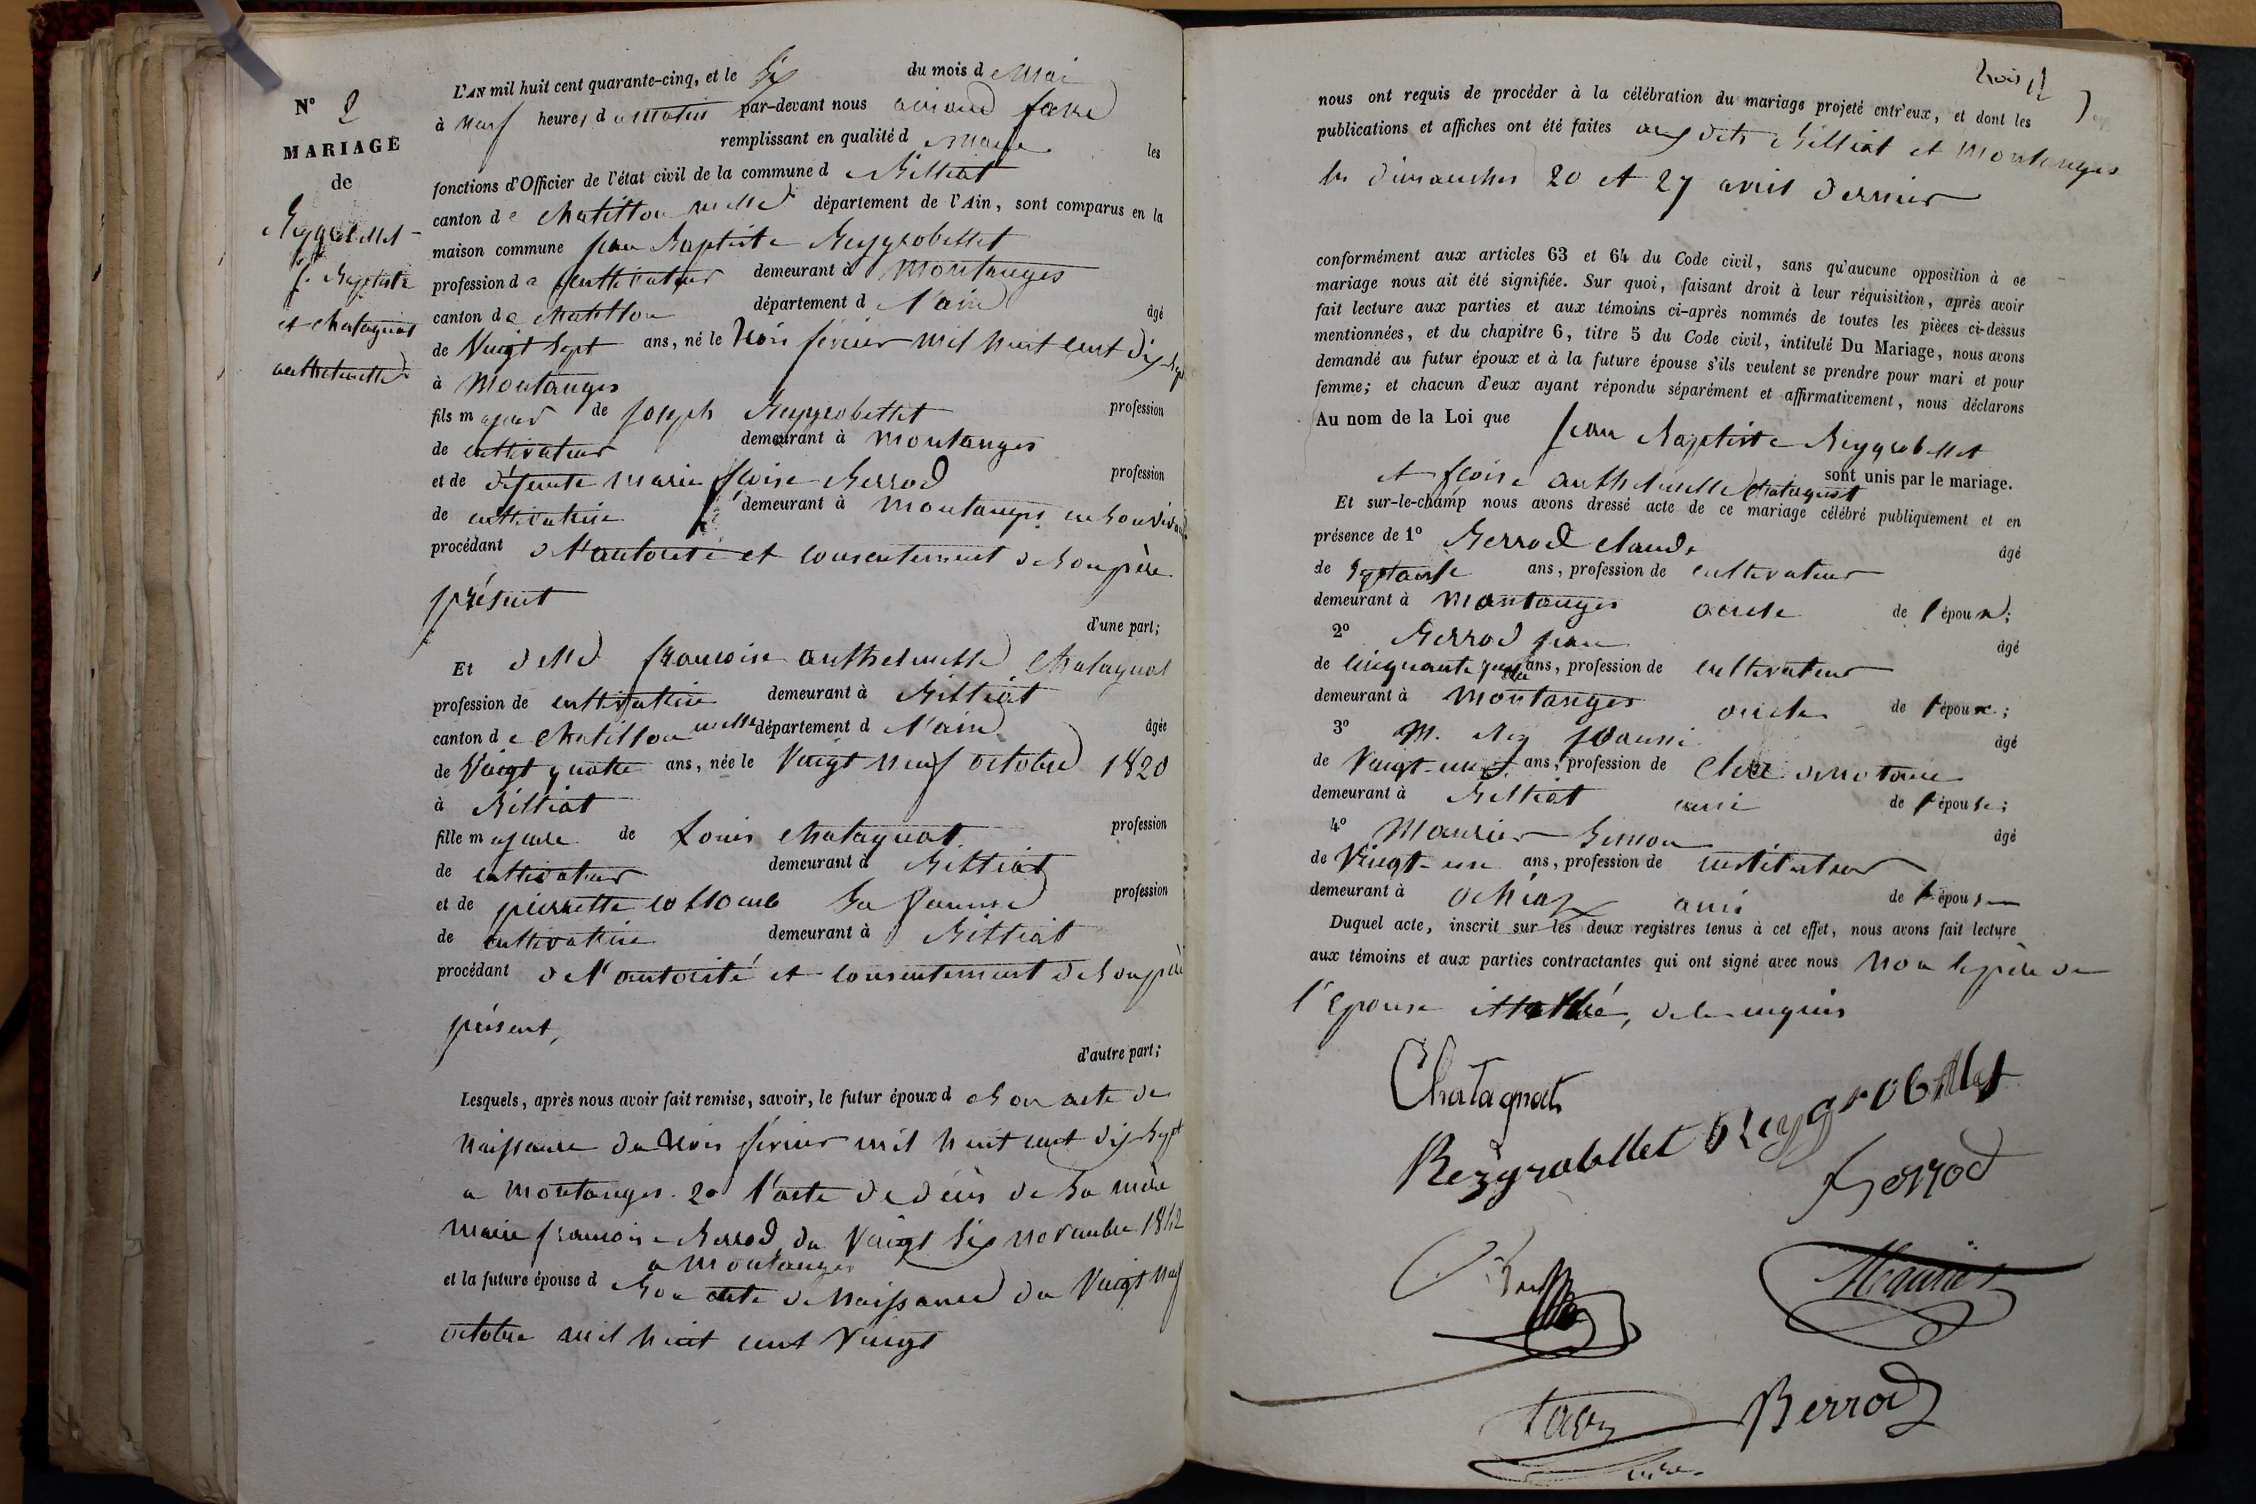 N° 2
MARIAGE
de
Reygrobellet
J. Baptiste
et Chatagnat
anthelmette
L'AN mil huit cent quarante-cinq, et le Six du mois de Mai
à neuf heures du matin par-devant nous aimé favre
remplissant en qualité de Maire les
fonctions d'Officier de l'état civil de la commune de Billiat
canton de Chatillon michle département de l'Ain, sont comparus en la
maison commune jean Baptiste Reygrobellet
profession de cultivateur demeurant à Montanges
canton de Chatillon département de l'ain âgé
de Vingt Sept ans, né le trois février mil huit cent dix Sept
à Montanges
fils majeur de joseph Reygrobellet profession
de cultivateur demeurant à montanges
et de défunte marie fçoise Berrod profession
de cultivatrice demeurant à Montanges en son vivant
procédant de l'autorité et consentement de son père
présent
d'une part;
Et delle françoise anthelmette Chatagnat
profession de cultivatrice demeurant à Billiat
canton de Chatillon michle département de l'ain âgée
de Vingt quatre ans, née le Vingt neuf octobre 1820
à Billiat
fille majeure de Louis Chatagnat profession
de cultivateur demeurant à Billiat
et de pierrette collomb Sa femme profession
de cultivatrice demeurant à Billiat
procédant de l'autorité et consentement de son père
présent,
d'autre part;
Lesquels, après nous avoir fait remise, savoir, le futur époux d e Son acte de
Naissance du trois février mil huit cent dix Sept
a Montanges. 2° l'acte de décès de Sa mère
marie françoise Berrod du Vingt Six novembre 1842
a Montanges
et la future épouse d Son acte de Naissance du Vingt neuf
octobre mil huit cent Vingt
trois
nous ont requis de procéder à la célébration du mariage projeté entr'eux, et dont les
publications et affiches ont été faites auxdits Billiat et Montanges
les dimanches 20 et 27 avril dernier
conformément aux articles 63 et 64 du Code civil, sans qu'aucune opposition à ce
mariage nous ait été signifiée. Sur quoi, faisant droit à leur réquisition, après avoir
fait lecture aux parties et aux témoins ci-après nommés de toutes les pièces ci-dessus
mentionnées, et du chapitre 6, titre 5 du Code civil, intitulé Du Mariage, nous avons
demandé au futur époux et à la future épouse s'ils veulent se prendre pour mari et pour
femme; et chacun d'eux ayant répondu séparément et affirmativement, nous déclarons
Au nom de la Loi que jean Baptiste Reygrobellet
et fçoise anthelmette Chatagnat sont unis par le mariage.
Et sur-le-champ nous avons dressé acte de ce mariage célébré publiquement et en
présence de 1° Berrod claude âgé
de Septante ans, profession de cultivateur
demeurant à Montanges oncle de l'époux;
2° Berrod jean âgé
de cinquante ans, profession de cultivateur
demeurant à Montanges oncle de l'époux;
3° M. Rey âgé
de Vingt-un ans, profession de Clerc de notaire
demeurant à Billiat ami de l'épouse;
4° Maurier Simon âgé
de Vingt-un ans, profession de instituteur
demeurant à ochiaz ami de l'épouse
Duquel acte, inscrit sur les deux registres tenus à cet effet, nous avons fait lecture
aux témoins et aux parties contractantes qui ont signé avec nous Non le père de
l'Epouse illettré, de ce enquis
Chatagnat
Reygrobellet Reygrobellet
Berrod
Maurier
favre Berrod
maire